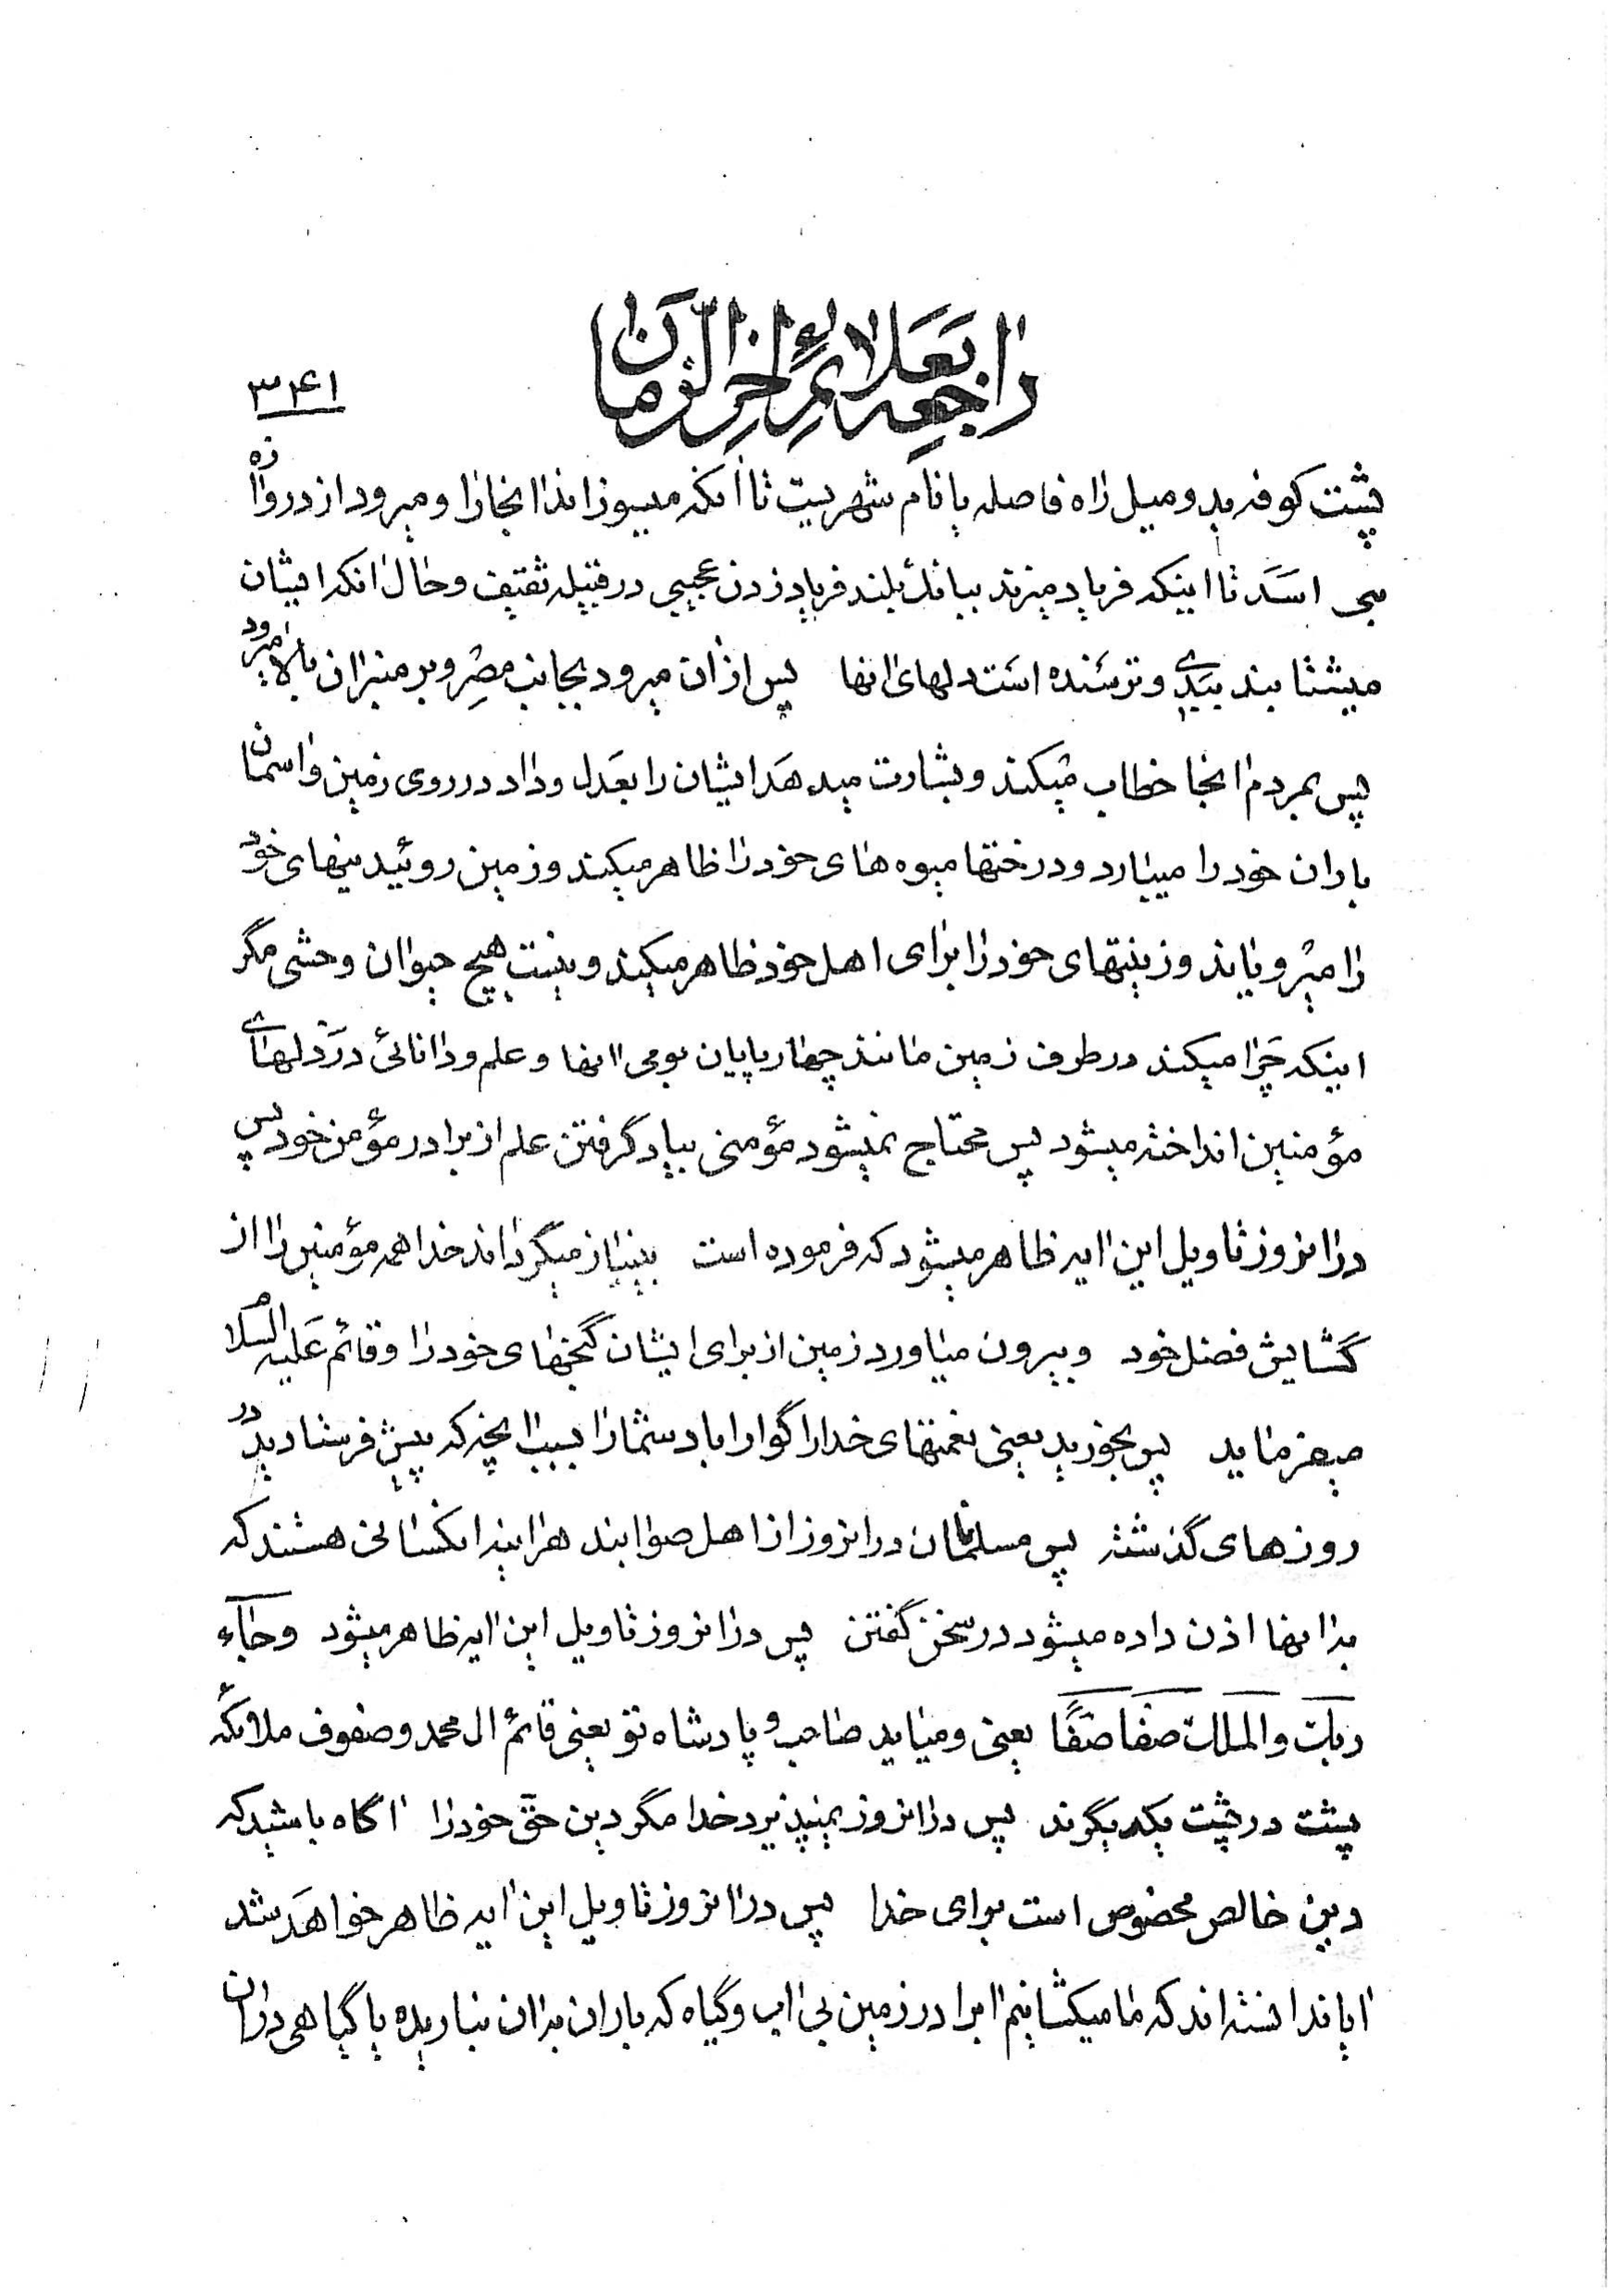 راجعه بعلائم اخر الزمان
۳۴۱
پشت کوفه بدو میل راه فاصله یا نام شهریست تا اانکه میسوزاند اانجارا و میرود از دروازه
بنی اسد تا اینکه فریاد میزند ببانک بلند فریاد زدن عجیبی در قبیله ثقیف و حال انکه ایشان
میشتابند ببدی و ترسنده است دلهای انها پس از ان میرود بجانب مصر و بر منبر ان بالا میرود
پس بمردم انجا خطاب میکند و بشارت میدهد ایشان را بعدل و داد در روی زمین و اسمان
باران خود را میبارد و درختها میوه های خود را ظاهر میکند و زمین روئیدنیهای خود
را میرویاند و زینتهای خود را برای اهل خود ظاهر میکند و نیست هیچ حیوان وحشی مگر
اینکه چرا میکند در طرف زمین مانند چهارپایان بومی انها و علم و دانائی در دلهای
مؤمنین انداخته میشود پس محتاج نمیشود مؤمنی بیاد گرفتن علم از برادر مؤمن خود پس
در انروز تاویل این ایه ظاهر میشود که فرموده است بینیاز میگرداند خدا همه مؤمنین را از
گشایش فضل خود و بیرون میاورد زمین از برای ایشان گنجهای خود را و قائم علیه السلام
میفرماید پس بخورید یعنی نعمتهای خدا را گوارا باد شما را بسبب انچه که پیش فرستادید در
روزهای گذشته پس مسلمانان در انروز از اهل صوابند هر اینه انکسانی هستند که
بدانها اذن داده میشود در سخن گفتن پس در انروز تاویل این ایه ظاهر میشود وجآء
ربک والملک صفا صفا یعنی و میاید صاحب و پادشاه تو یعنی قائم ال محمد و صفوف ملائکه
پشت در پشت یکدیگرند پس در انروز نمیپذیرد خدا مگر دین حق خود را اگاه باشید که
دین خالص مخصوص است برای خدا پس در انروز تاویل این ایه ظاهر خواهد شد
ایا ندانسته اند که ما میکشانیم ابرا در زمین بی اب و گیاه که باران بدان نباریده یا گیاهی در ان